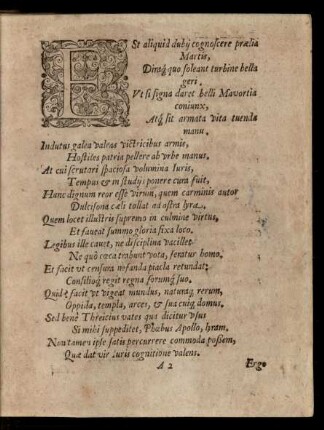 ESt aliquid dubij cognoscere prælia
Martis,
Dirāq; quo soleant turbine bella
geri,
Vt si signa daret belli Mavortia
coniunx,
Atq; sit armata vita tuenda
manu.
Indutus galea valeas victricibus armis,
Hostiles patria pellere ab vrbe manus.
At cui scrutari spaciosa volumina Iuris,
Tempus & in studijs ponere cura fuit,
Hunc dignum reor esse virum, quem carminis autor
Dulcisona cæli tollat ad astra lyra.
Quem locet illustris supremo in culmine virtus,
Et faveat summo gloria fixa loco.
Legibus ille cavet, ne disciplina vacillet
Ne quò cæca trahunt vota, feratur homo.
Et facit vt censura nefanda piacla retundat;
Consilioq; regit regna forumq; suo.
Quid? facit vt vigeat mundus, naturaq; rerum,
Oppida, templa, arces, & sua cuiq; domus.
Sed benè Threicius vates qua dicitur vsus
Si mihi suppeditet, Phœbus Apollo, lyram.
Non tamen ipse satis percurrere commoda possem,
Quæ dat vir Iuris cognitione valens.
A 2 Ergo